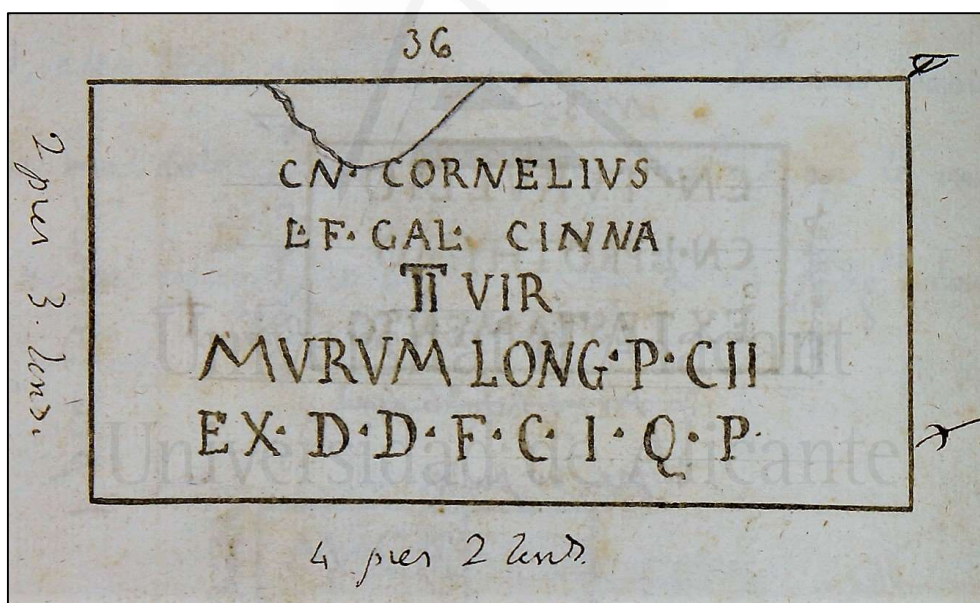 36
CN· CORNELIVS
L·F· GAL· CINNA
II VIR
MVRVM LONG·P·CII
EX· D·D·F·C·I·Q·P·
2 pies 3·
4 pies 2
Universitat d'Alacant
Universidad de Alicante